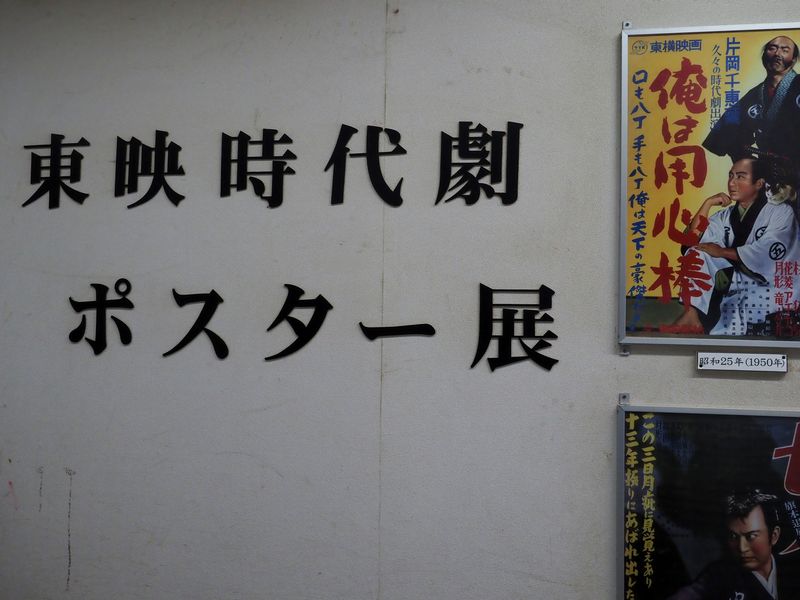 東映時代劇
ポスター展
東横映画
片岡千恵蔵
久々の時代劇出演
俺は用心棒
口も八丁 手も八丁 俺は天下の豪傑
花菱ア
月形竜
昭和25年(1950年)
この三日月疵に見覚えあり
十三年振りにあばれ出した
旗本退屈